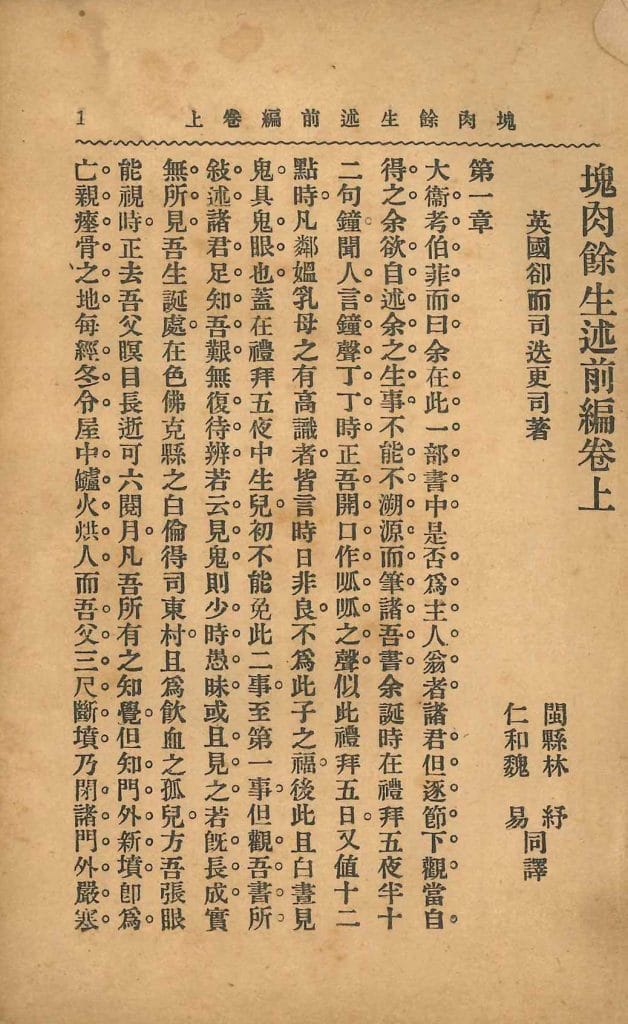 塊肉餘生述前編卷上
1
塊肉餘生述前編卷上
英國卻而司迭更司著
閩縣林 紓
仁和魏 易
同譯
第一章
大衞考伯菲而曰余在此一部書中是否爲主人翁者諸君但逐節下觀當自
得之余欲自述余之生事不能不溯源而筆諸吾書余誕時在禮拜五夜半十
二句鐘聞人言鐘聲丁丁時正吾開口作呱呱之聲似此禮拜五日又值十二
點時凡鄰媼乳母之有高識者皆言時日非良不爲此子之福後此且白晝見
鬼具鬼眼也蓋在禮拜五夜中生兒初不能免此二事至第一事但觀吾書所
敍述諸君足知吾艱無復待辨若云見鬼則少時愚昧或且見之若旣長成實
無所見吾生誕處在色佛克縣之白倫得司東村且爲飮血之孤兒方吾張眼
能視時正去吾父瞑目長逝可六閱月凡吾所有之知覺但知門外新墳卽爲
亡親瘞骨之地每經冬令屋中罏火烘人而吾父三尺斷墳乃閉諸門外嚴寒